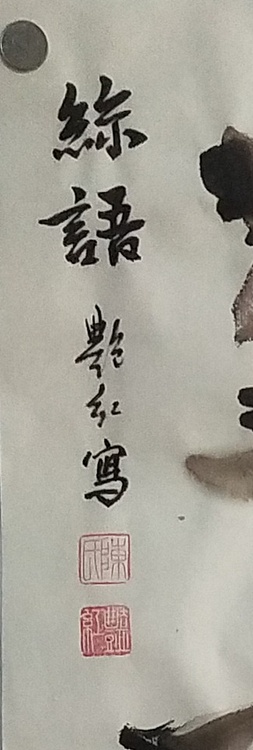 絲語
艷紅寫
陳氏
艷紅